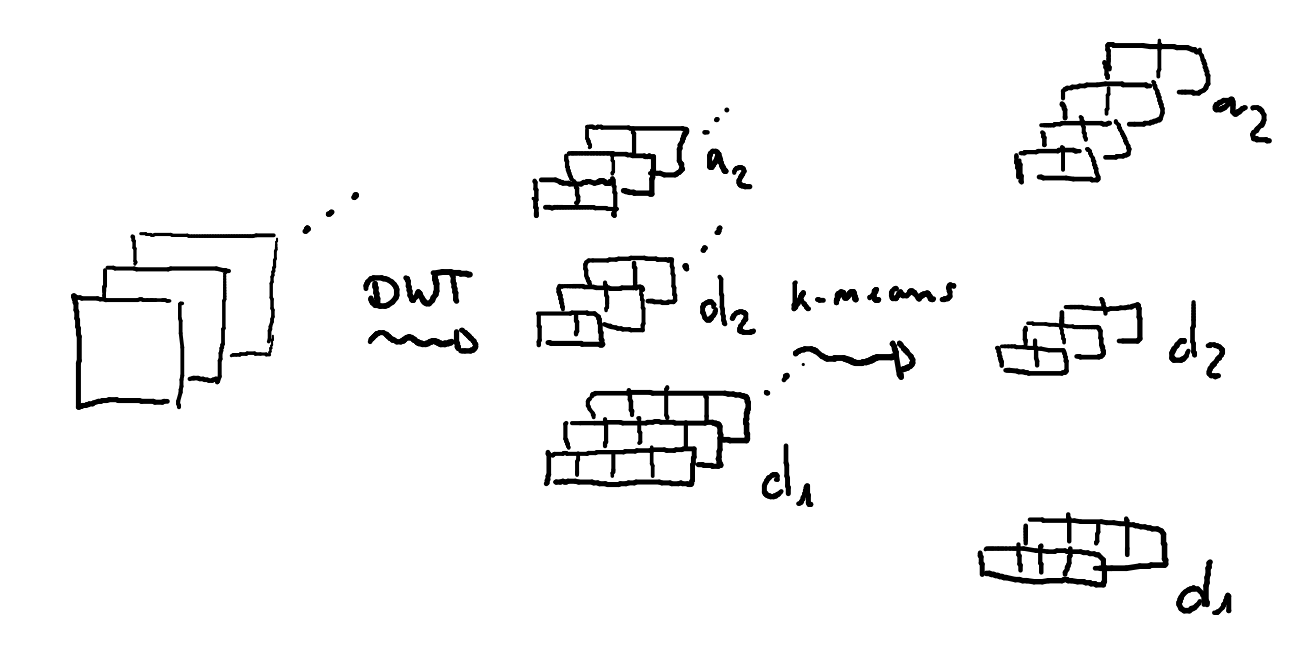 DWT
a2
d2
d1
k-means
a2
d2
d1